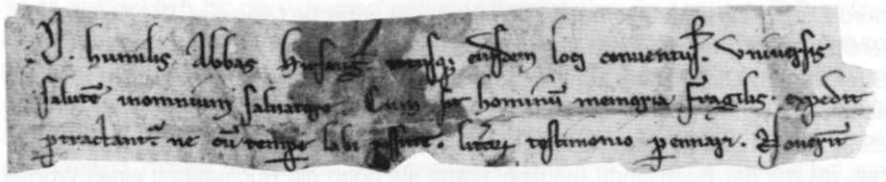 .V. humilis Abbas totusq; eiusdem loci conventus. Universis
salutē in omnium salvatore. Cum sit hominū memoria fragilis. expedit
ne cū tempore labi possint. litterarum testimonio perennari.